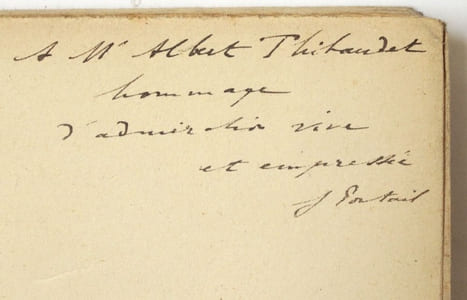 A Mr Albert Thibaudet
hommage
d'admiration vive
et empressée